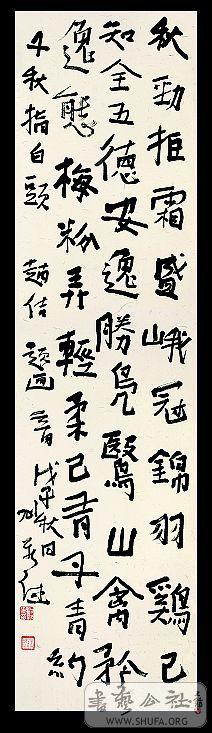 秋勁拒霜盛峨冠錦羽鷄已
知全五德安逸勝鳧鷖山禽矜
逸態梅粉弄輕柔已有丹青約
千秋指白頭 趙佶題画二首
秋日
書藝公社
WWW.SHUFA.ORG